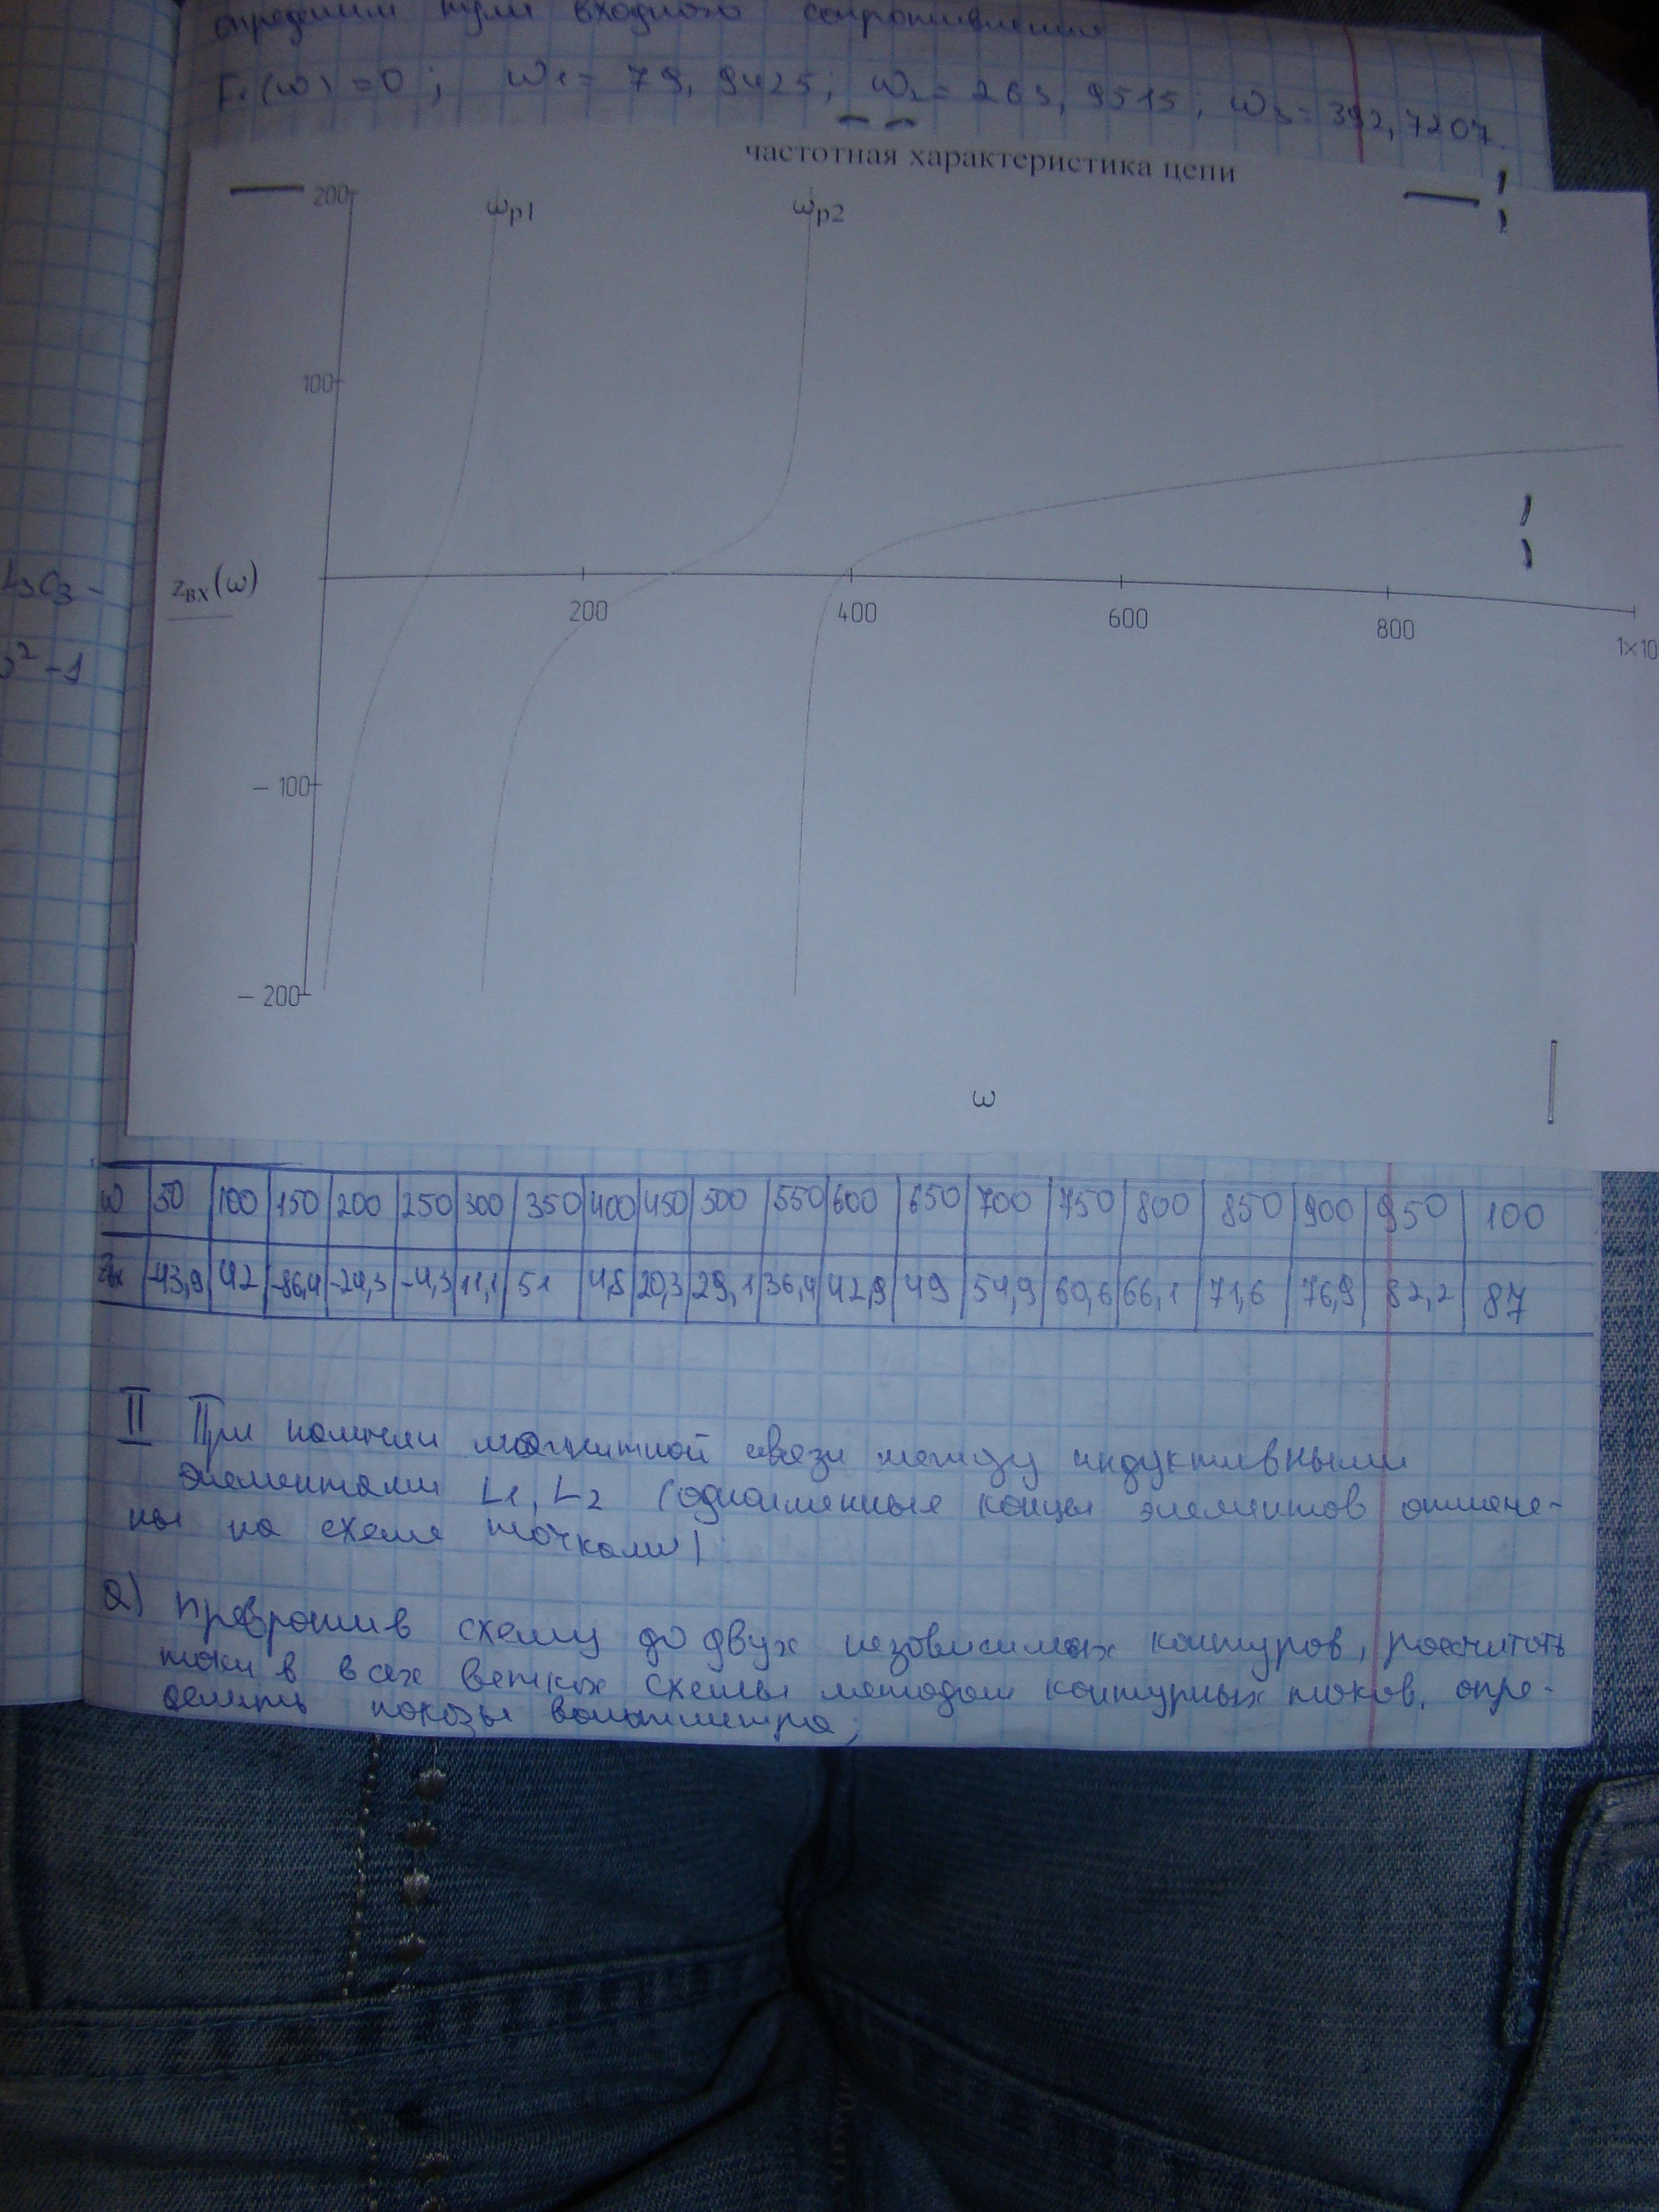 определим нули входного сопротивления
F₁(ω) = 0; ω₁ = 79,9425; ω₂ = 263,9515; ω₃ = 392,7207.
частотная характеристика цепи
200
ωp1
ωp2
100
L₃C₃ -
zвх(ω)
200
400
600
800
1×10
² - 1
– 100
– 200
ω
ω 50 100 150 200 250 300 350 400 450 500 550 600 650 700 750 800 850 900 950 100
Zвх -43,9 42 -86,4 -24,3 -4,3 11,1 51 4,8 20,3 29,1 36,4 42,9 49 54,9 60,6 66,1 71,6 76,9 82,2 87
II При наличии магнитной связи между индуктивными
элементами L1, L2 (одноименные концы элементов отмече-
ны на схеме точками):
а) превратив схему до двух независимых контуров, рассчитать
токи в всех ветках схемы методом контурных токов, опре-
делить показы вольтметра;